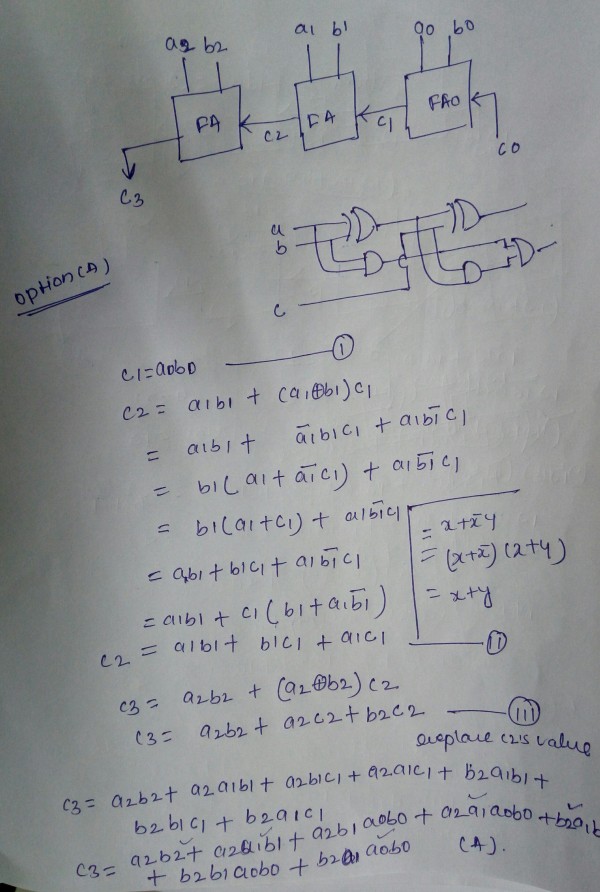 a2 b2 a1 b1 a0 b0
FA FA FA0
C2 C1
C3 C0
a
b
c
option(A)
C1=a0b0 ①
C2 = a1b1 + (a1⊕b1)C1
= a1b1 + a̅1b1C1 + a1b̅1C1
= b1(a1+a̅1C1) + a1b̅1C1
= b1(a1+C1) + a1b̅1C1
= a1b1 + b1C1 + a1b̅1C1
= a1b1 + C1(b1+a1b̅1)
C2 = a1b1 + b1C1 + a1C1 ②
= x+x̅y
= (x+x̅)(x+y)
= x+y
C3 = a2b2 + (a2⊕b2)C2
C3 = a2b2 + a2C2 + b2C2 ③
C2's value
C3 = a2b2 + a2a1b1 + a2b1C1 + a2a1C1 + b2a1b1 +
b2b1C1 + b2a1C1
C3 = a2b2 + a2a1b1 + a2b1a0b0 + a2a1a0b0 + b2a1b
+ b2b1a0b0 + b2a1a0b0 (A).